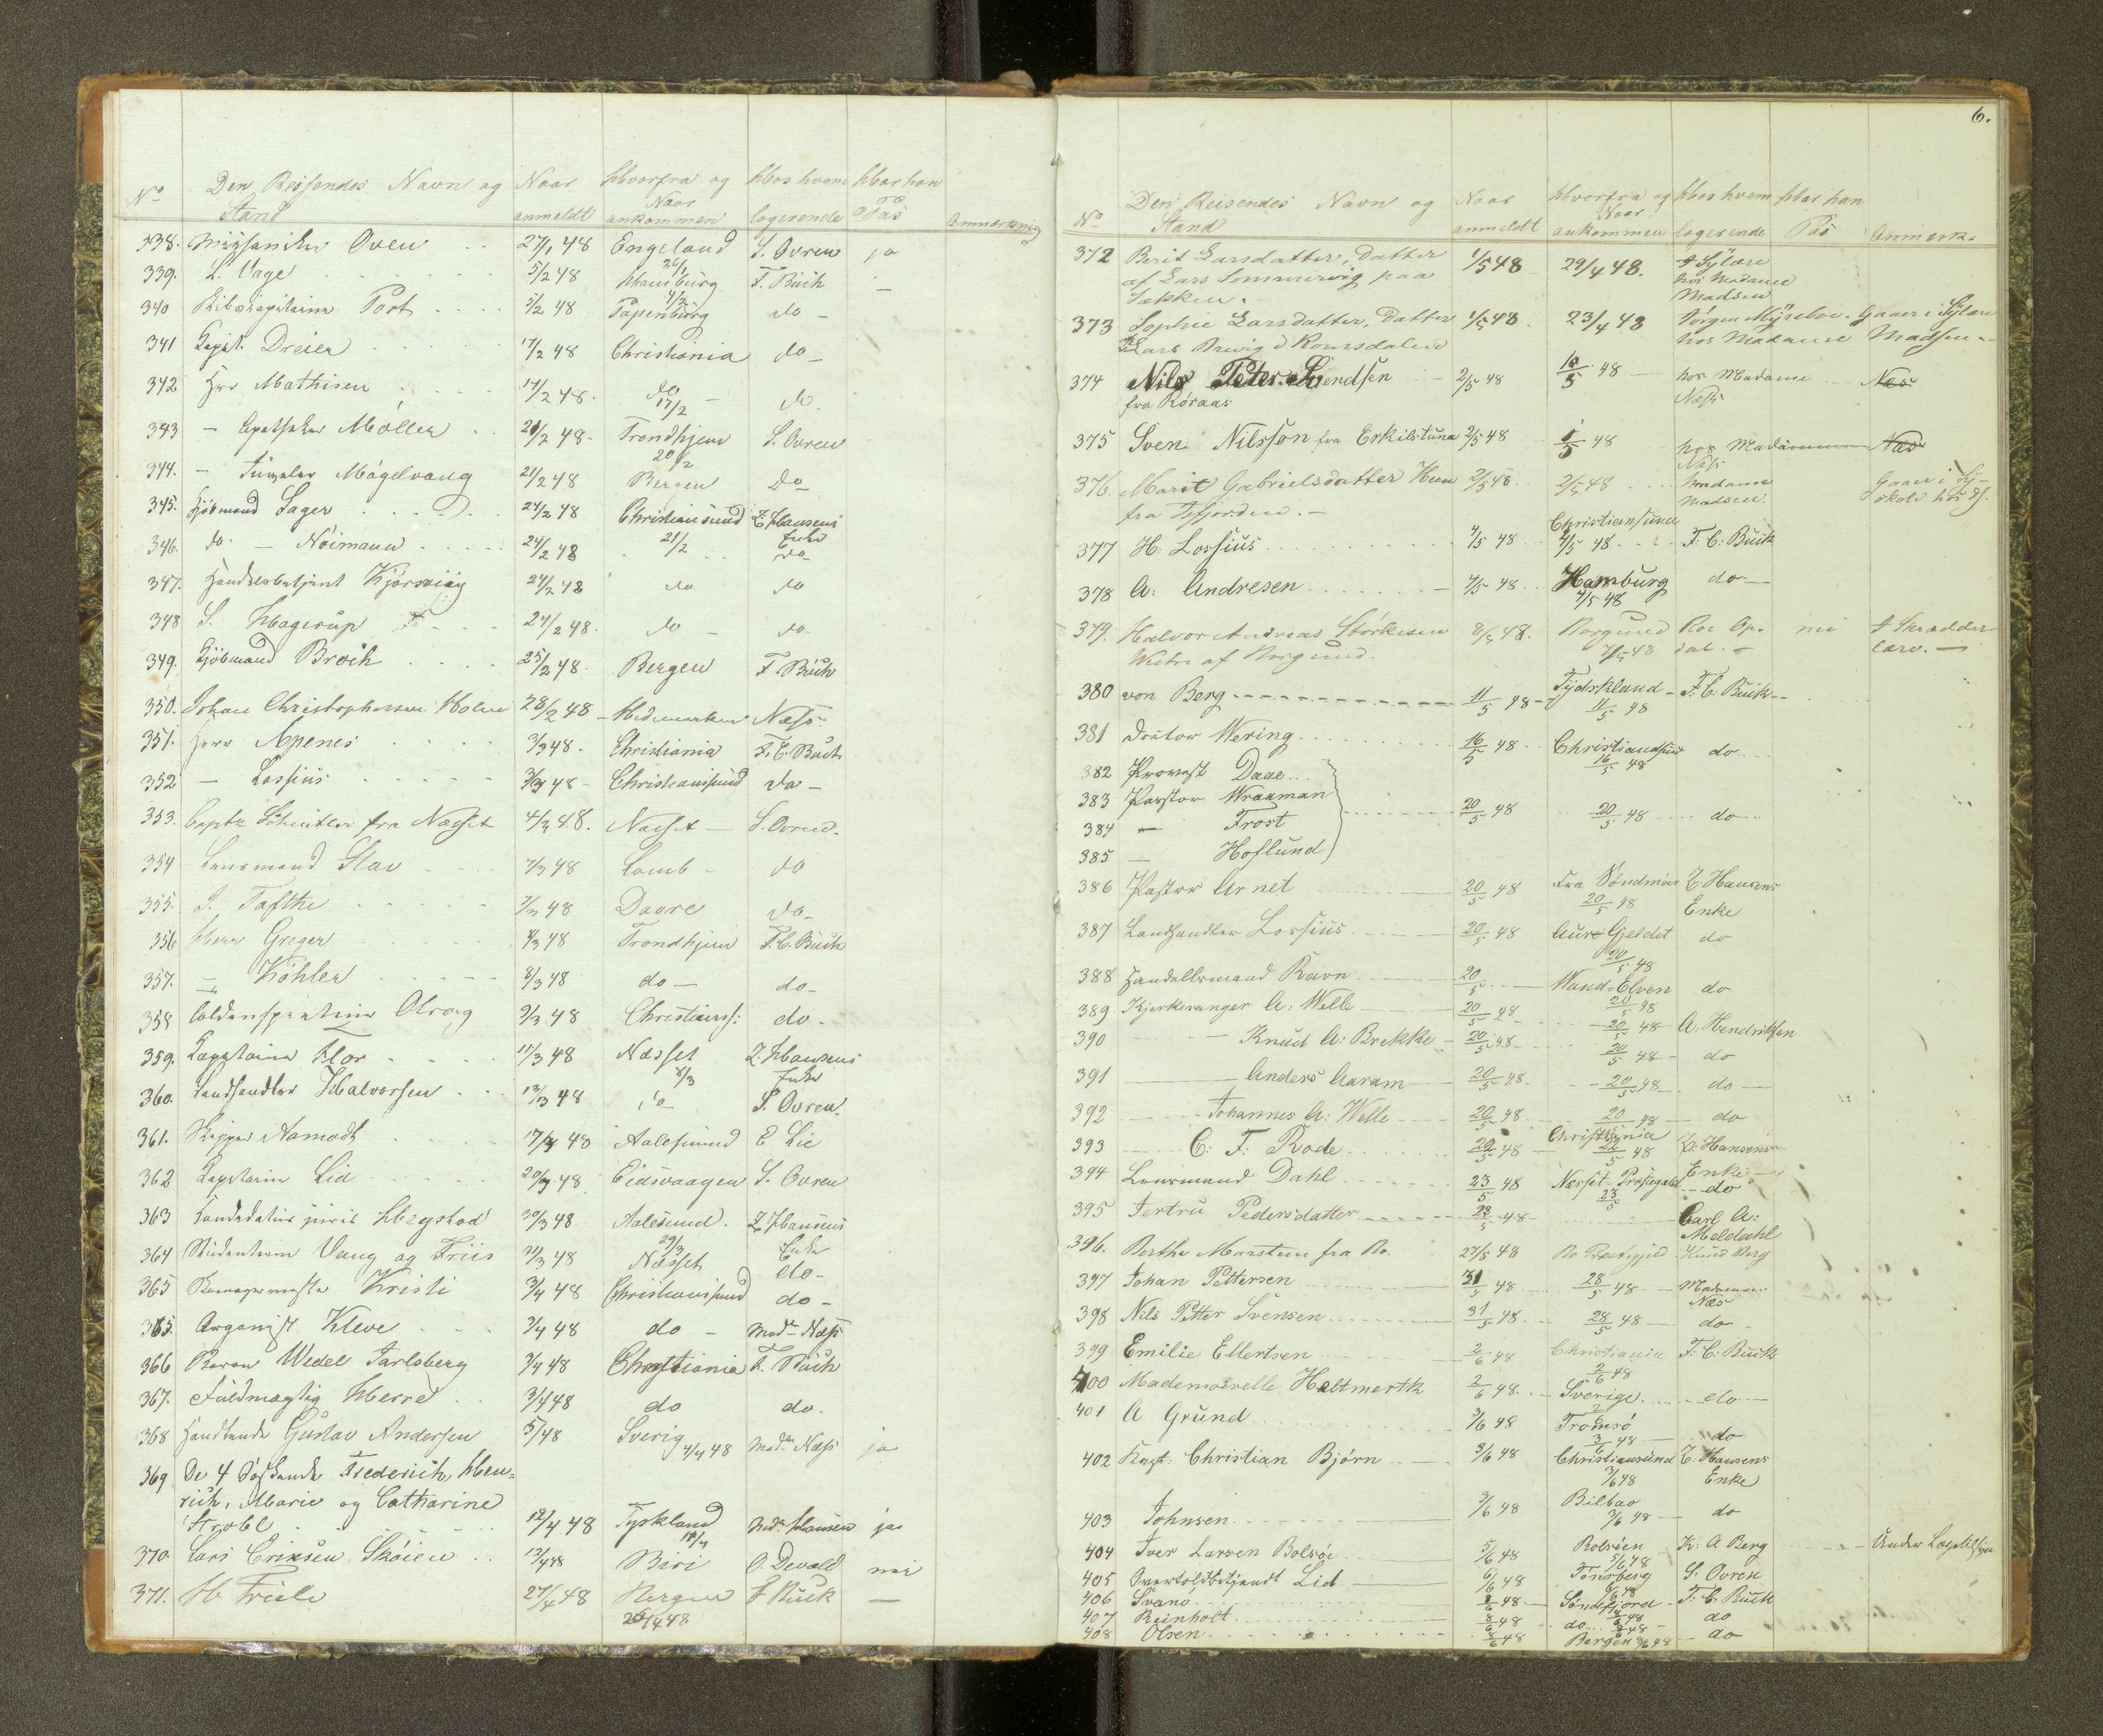 No Den Reisendes Navn og Stand Naar anmeldt Hvorfra og Naar ankommen Hos hvem logerende Har han Pas Anmærkning
338. Oven 27/1 48 Engeland 26/1 S. Ovren ja
339. L. Vage 5/2 48 Hamburg 4/2 F. Buch —
340 Port 5/2 48 Papenburg do —
341 Capt. Dreier 17/2 48 Christiania do —
342 Herr Mathisen 17/2 48. do 17/2 — do.
343 — Apotheker Møller 21/2 48 - Trondhjem 20/2 S. Ovren
344. — Møgelvang 21/2 48 Bergen Do
345. Kjøbmand Lager 24/2 48 Christiansund 21/2 Z. Hansens Enke
346. do. — Nöimann 24/2 48 do
347. 24/2 48 do do
348 S. Hagerup 24/2 48. do — do.
349. Kjøbmand Broch 25/2 48 Bergen F. Buch
350. Johan Christophersen Holm 28/2 48 - Hedemarken Næss
351. Herr Apenes 3/3 48. Christiania F. C. Buch
352 — Lossius 3/3 48 - Christiansund do —
353. fra Næsset 4/3 48. Næsset — S. Ovren.
354 Lensmand Stav 7/3 48 Lomb — do
355. J. Tofthe 7/3 48 Dovre do —
356 Herr Greger 8/3 48 Trondhjem F. C. Buch
357. — Köhler 8/3 48 do — do —
358 9/3 48 Christianss: do.
359. Capitaine Flor 11/3 48 Næsset 8/3 Z. Hansens Enke
360. Landhandler Halvorsen 13/3 48 do S. Ovren.
361. Skipper Aamodt 17/3 48 Aalesund E Lie
362 Capitain Lie 20/3 48 Eidsvaagen S. Ovren
363 Candidatus juris 30/3 48 Aalesund. 29/3 Z. Hansens Enke
364 Studenterne Vang og Friis 31/3 48 Næsset do —
365 Christi 3/4 48 Christiansund do —
365. Organist Kleve 3/4 48 do — Mad. Næss
366 Baron Wedel Jarlsberg 3/4 48 Christiania F. Buch
367. Fuldmægtig Herre 3/4 48 do do.
368 Gustav Andersen 5/48 Sverig 4/4 48 Mad. Næss ja
369 De 4 Søskende Frederich, Hen-
rich, Marie og Catharine
Strobl 12/4 48 Tyskland 11/4 Mad. Hansen ja
370. Lars Eriksen Skøien 12/4 48 Biri O. Devold nei
371. H. Friele 27/4 48 Bergen 26/4 48 F Buck —
6.
No Den Reisendes Navn og Stand Naar anmeldt Hvorfra og Naar ankommen Hos hvem logerende Har han Pas Anmærk.
372 Berit Larsdatter, Datter 1/5 48 29/4 48. i Sylære
af Lars Sommervig paa hos Madame
Sekken. Madsen
373 Sophie Larsdatter, Datter 1/5 48. 23/4 48 Jørgen Gaaer i Sylære
Lars i Romsdalen hos Madame Madsen.
374 Nils Peter Svendsen 2/5 48 48 — hos Madame Næs
fra Røraas Næss
375 Sven Nilsson fra Eskilstuna 2/5 48 1/5 48 hos Madammen Næs
Næss
376. Marit Gabrielsdatter Heen 2/5 48. 2/5 48 Madame Madsen. Gaaer i Sy-
377 H. Lossius 4/5 48 Christiansund 4/5 48 F. C. Buck
378 A. Andresen 7/5 48 Hamburg 7/5 48 do —
379. Halvor Andreas Størkesen 8/5 48. Borgund 7/5 48 nei i Skrædder-
af Borgund. lære. —
380 von Berg 11/5 48 - Tydskland 11/5 48 F. C. Buck
381 Doctor Wering 16/5 48 Christiansund 16/5 48 do
382 Provst Daae
383 Pastor Wraaman
384 — Frost 20/5 48 20/5 48 do
385 — Hoflund
386 Pastor Arnet 20/5 48 fra Søndmør 20/5 48 Z. Hansens Enke
387 Landhandler Lossius 20/5 48 Aure Gjeldet 20/5 48 do
388 Handelsmand Ravn 20/5 — Wand-Elven 20/5 48 do
389 Kjerkesanger A. Welle 20/5 48 20/5 48 A. Hendriksen
390 — Knud A. Brekke 20/5 48 20/5 48 do
391 — Anders Aaram 20/5 48 20/5 48 do
392 — Johannes A. Welle 20/5 48 20/5 48 do
393 C. F. Rode 22/5 48 Christiania 22/5 48 Z. Hansens Enke
394 Lensmand Dahl 23/5 48 Nesset Præstegjeld 23/5 do
395 Jertru Pedersdatter 23/5 48 Carl A. Meldahl
396. Berthe Marsteen fra Bo. 27/5 48 Bo Præstegjeld Knud Berg
397 Johan Pettersen 31/5 48 28/5 48 Madammen Næs
398 Nils Petter Svensen 31/5 48 28/5 48 do
399 Emilie Ellertsen 2/6 48 Christiania 2/6 48 F. C. Buck
400 Mademoiselle Holtmerk 2/6 48 Sverige do
401 A Grund 3/6 48 Tromsø 3/6 48 do
402 Capt. Christian Bjørn 3/6 48 Christiansund 3/6 48 Z. Hansens Enke
403 Johnsen 3/6 48 Bilbao 3/6 48 do
404 Iver Larsen Bolsøe 5/6 48 Bolsøen 5/6 48 K. A Berg Under
405 Overtoldbetjendt Lid 6/6 48 Tønsberg 6/6 48 S. Ovren
406 Svanø 8/6 48 Søndfjord F. C. Buck
407 Reinholt 8/6 48 do 8/6 48 do
408 Olsen 8/6 48 Bergen 8/6 48 do